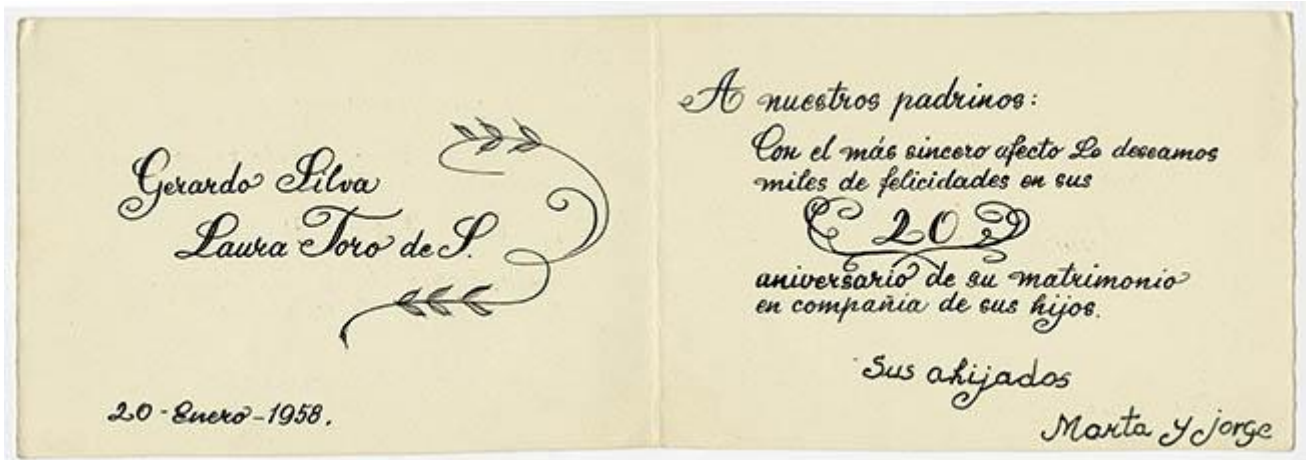 Gerardo Silva
Laura Toro de S.
20-Enero-1958.
A nuestros padrinos:
Con el más sincero afecto Le deseamos
miles de felicidades en sus
20
aniversario de su matrimonio
en compañia de sus hijos.
Sus ahijados
Marta y jorge